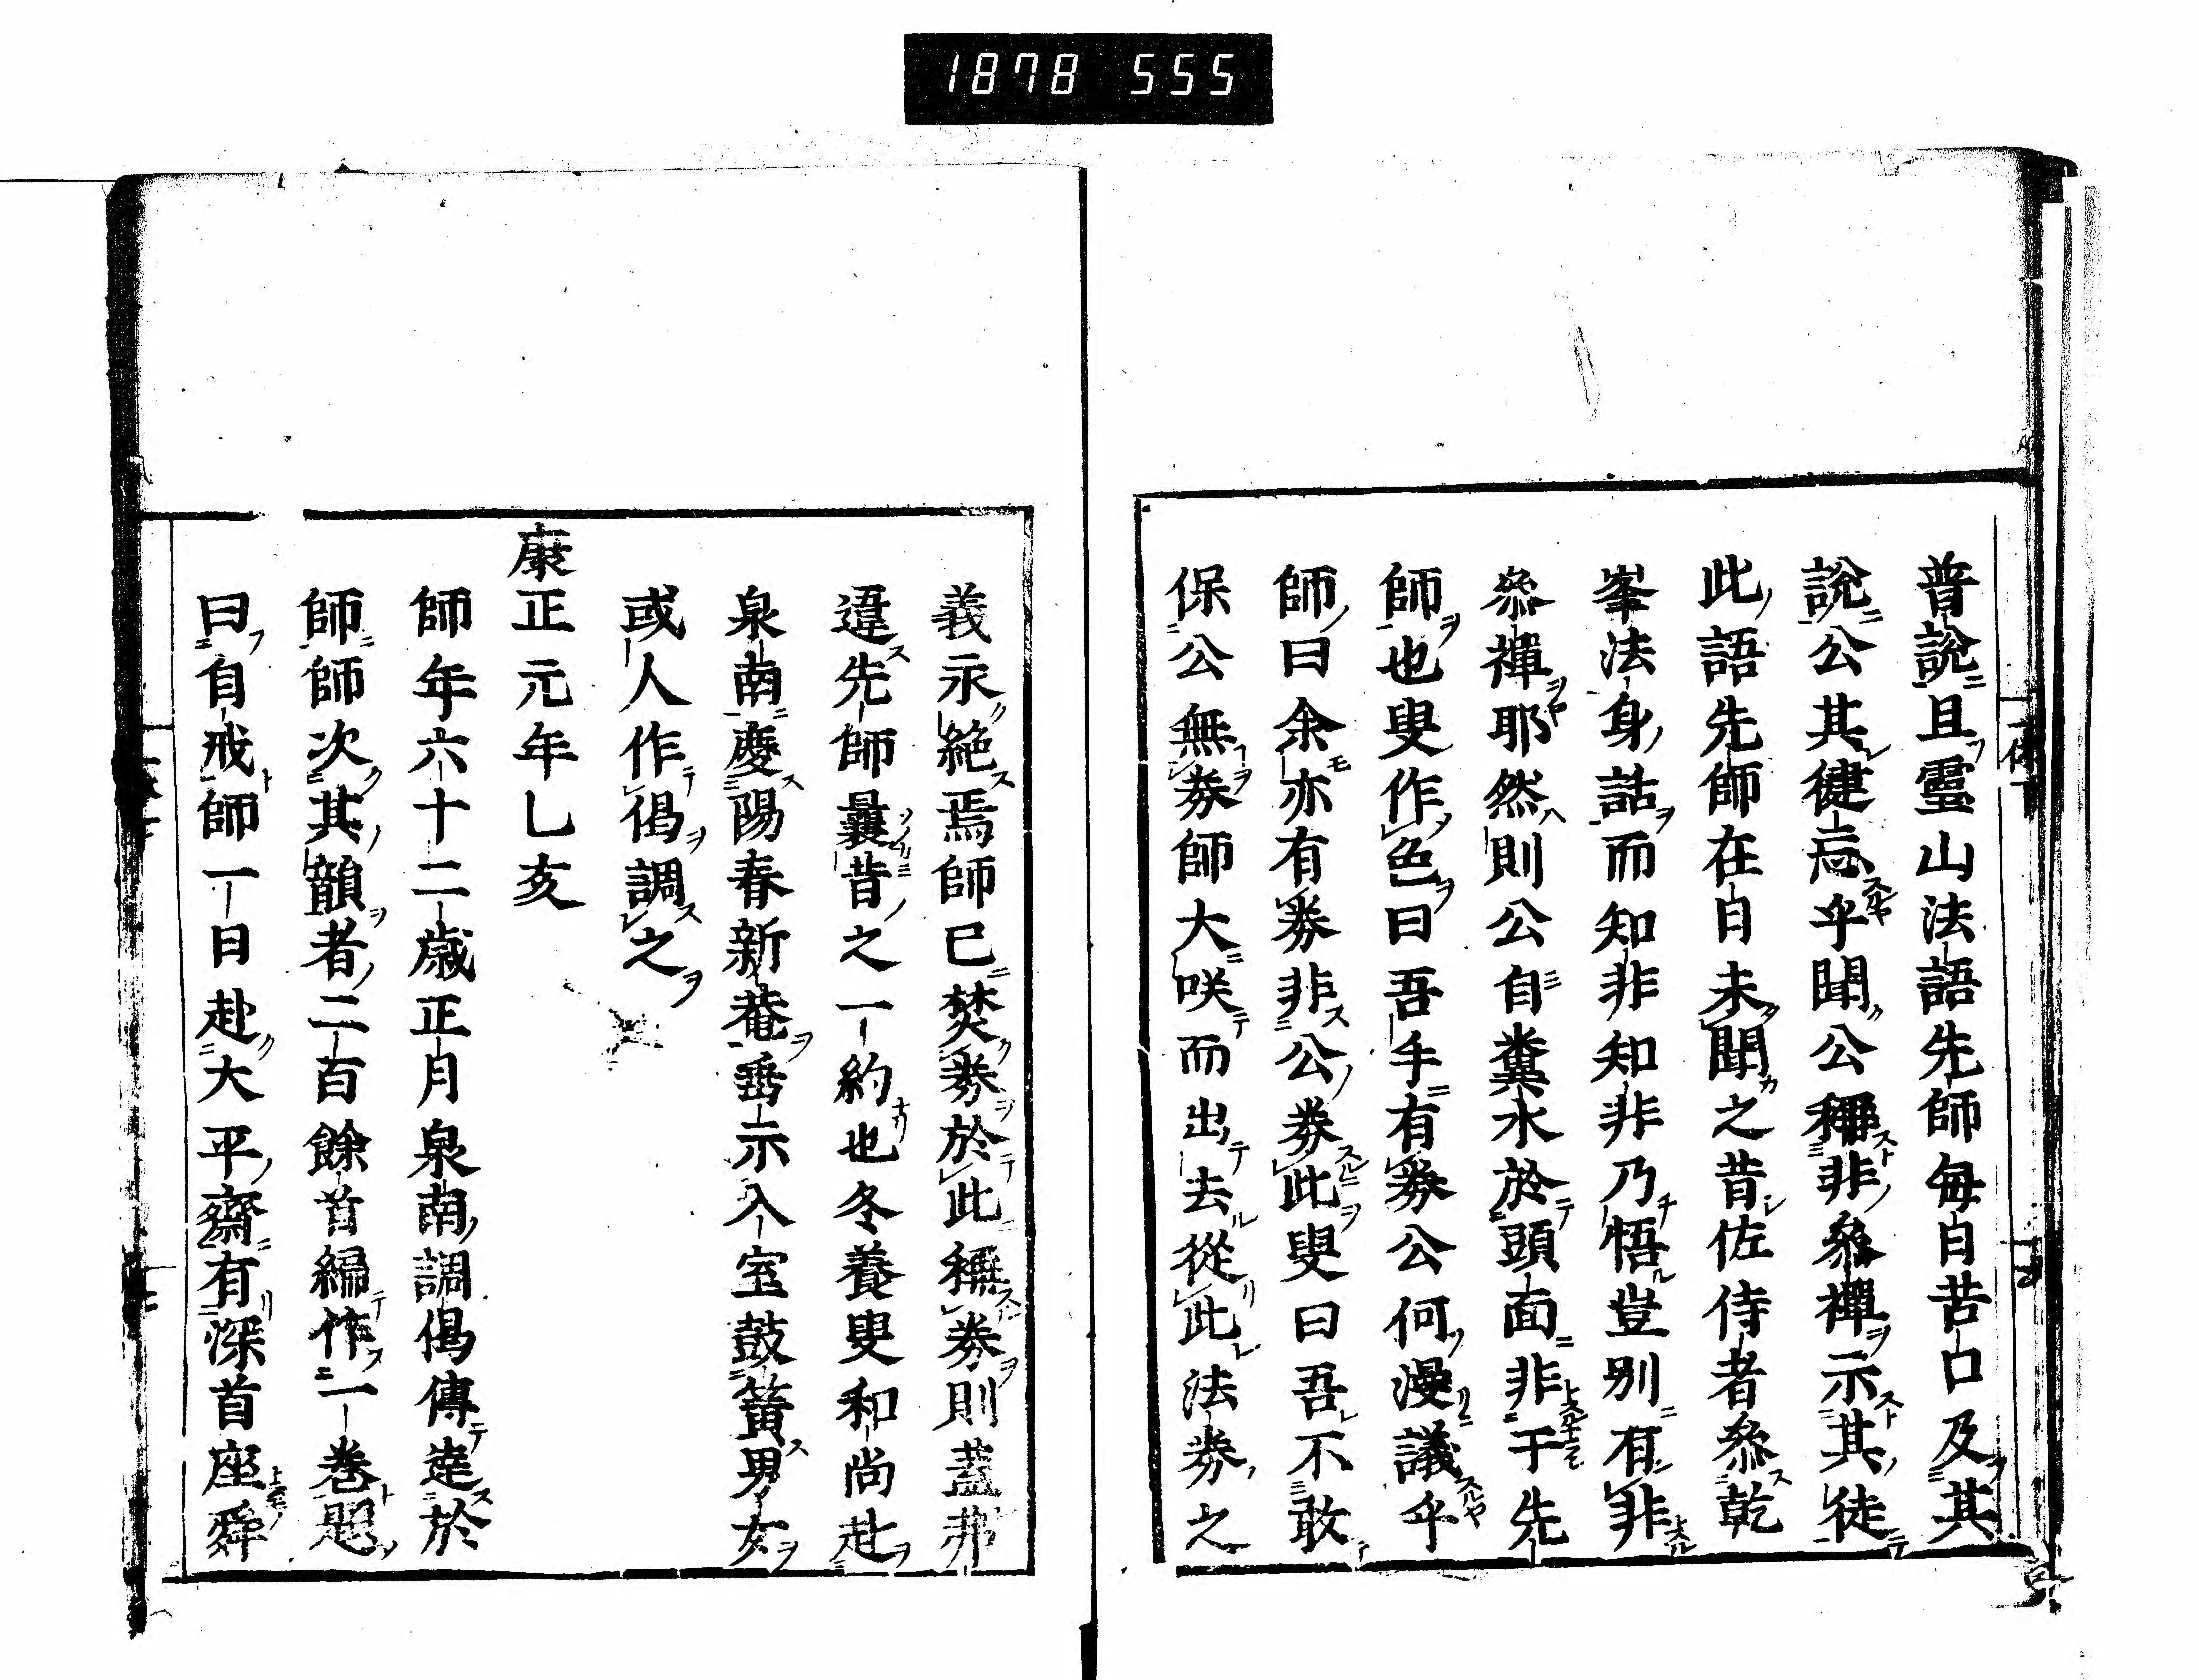 1878 555
普說且靈山法語先師每自苦口及其
說公其健忘乎聞公稱非參禪示其徒
此語先師在日未聞之昔佐侍者參乾
峯法身話而知非知非乃悟豈別有非
參禪耶然則公自糞水於頭面非于先
師也叟作色曰吾手有券公何漫議乎
師曰余亦有券非公券此叟曰吾不敢
保公無券師大咲而出去從此法券之
義永絕焉師已焚券於此稱券則蓋弗
違先師曩昔之一約也冬養叟和尚赴
泉南慶陽春新菴垂示入室鼓簧男女
或人作偈調之
康正元年乙亥
師年六十二歲正月泉南調偈傳達於
師師次其韻者二百餘首編作一卷題
曰自戒師一日赴大平齋有深首座舜